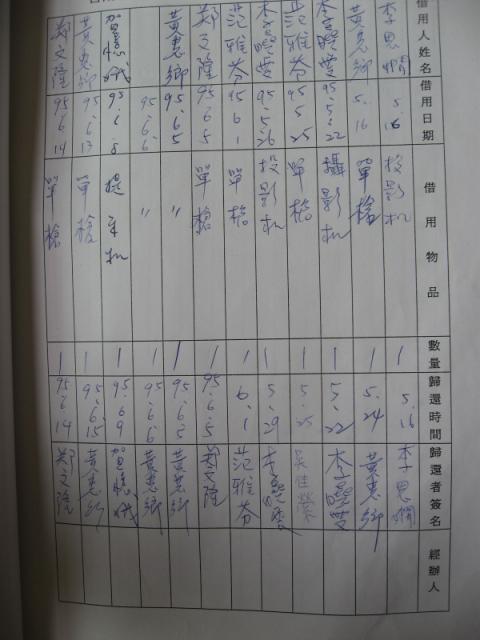 借用人姓名 借用日期 借用物品 數量 歸還時間 歸還者簽名 經辦人
李思嫻 5.16 投影机 1 5.16 李思嫻
黃惠鄉 5.16 單槍 1 5.24 黃惠鄉
李曉雯 95.5.22 攝影机 1 5.22 李曉雯
范雅芬 95.5.25 單槍 1 5.25
李曉雯 95.5.26 投影机 1 5.29 李曉雯
范雅芬 95.6.1 單槍 1 6.1 范雅芬
鄭文隆 95.6.5 單槍 1 95.6.5 鄭文隆
黃惠鄉 95.6.5 〃 1 95.6.5 黃惠鄉
95.6.6 〃 1 95.6.6 黃惠鄉
95.6.8 1 95.6.9
黃惠鄉 95.6.13 單槍 1 95.6.15 黃惠鄉
鄭文隆 95.6.14 單槍 1 95.6.14 鄭文隆